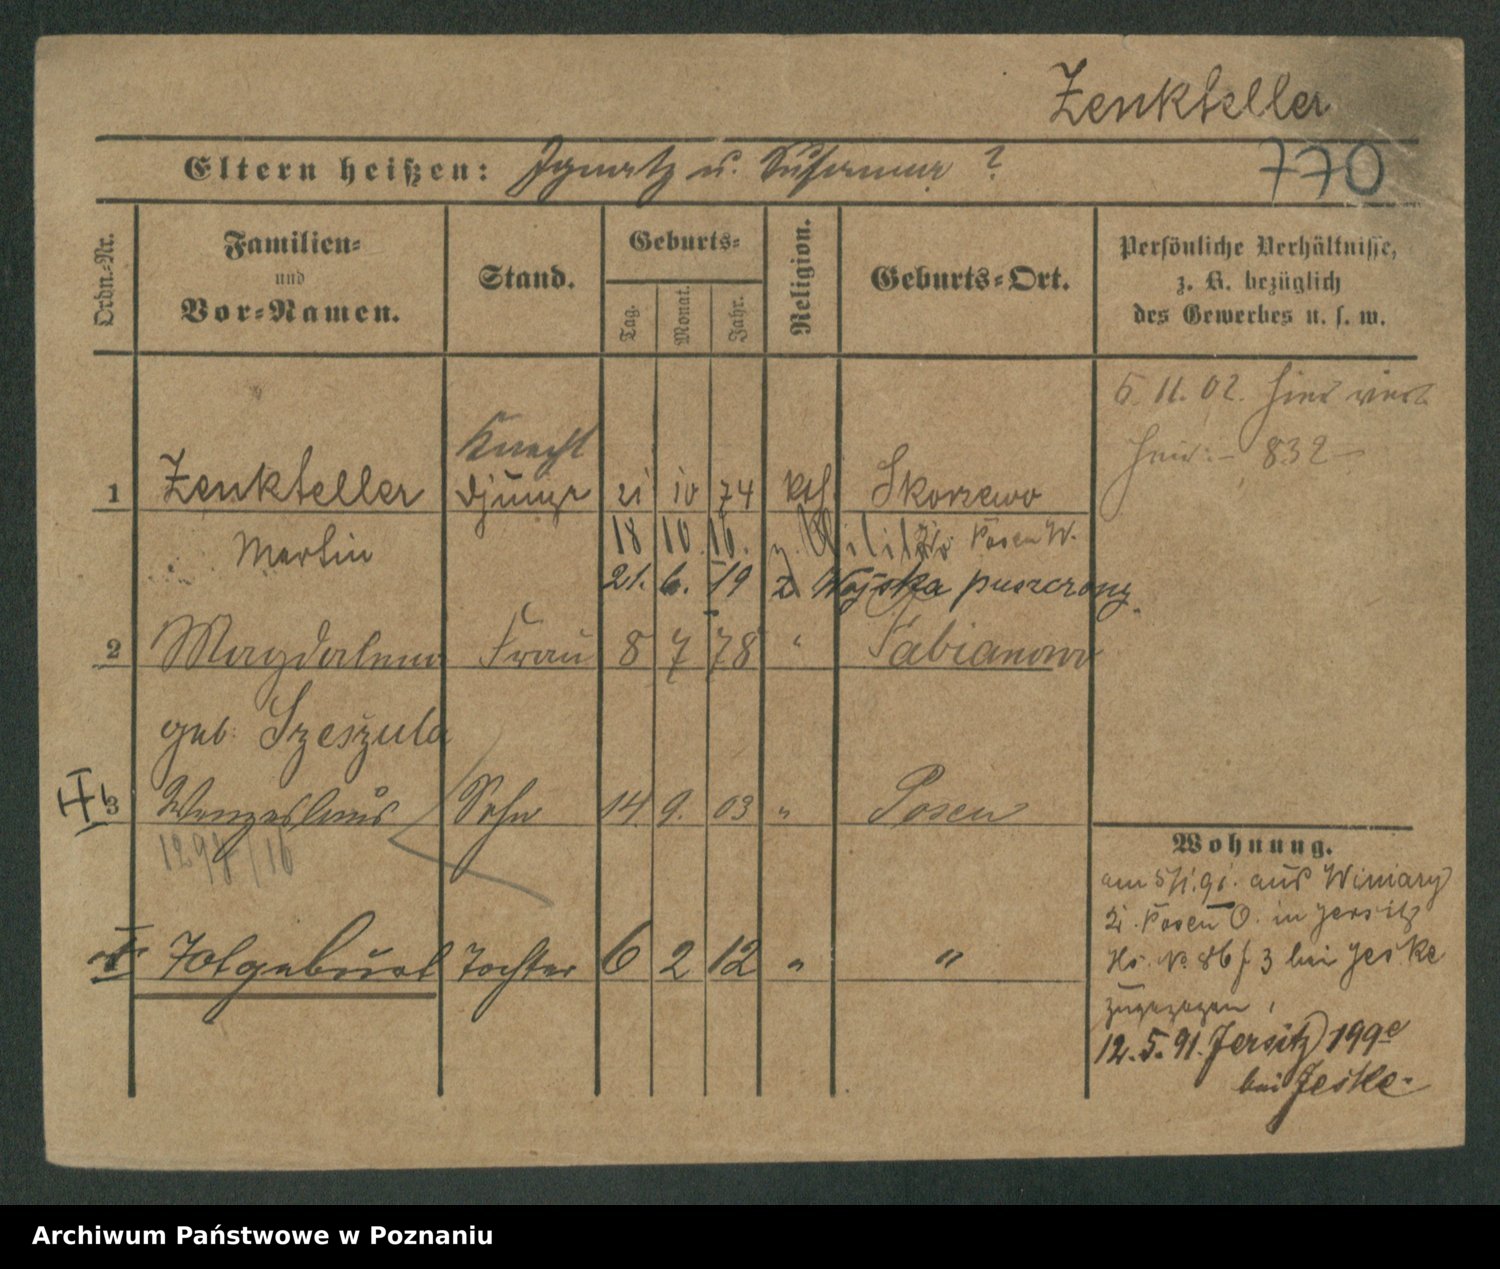 Zenkteller
Eltern heißen: Ignatz u. Susanna ?
770
Ordn.-Nr.
Familien-
und
Vor-Namen.
Stand.
Geburts-
Tag.
Monat.
Jahr.
Religion.
Geburts-Ort.
Persönliche Verhältnisse,
z. B. bezüglich
des Gewerbes u. s. w.
5. 11. 02. hier verh.
832
Knecht
1 Zenkteller 21 10 74 kath. Skorzewo
Martin 18 10. 16. z. Militär Posen W.
21. 6. 19 z Wojska puszczony.
2 Magdalena Frau 8 7 78 " Fabianowo
geb. Szeszula
3 Wenzeslaus Sohn 14. 9. 03 " Posen
1298/16
Totgeburt Tochter 6 2 12 " "
Wohnung.
am 5/1.91. aus Winiary
Kr. Posen O. in Jersitz
Hs. N. 86 f 3 bei Jeske
zugezogen.
12. 5. 91. Jersitz 199e
bei Jeske.
Archiwum Państwowe w Poznaniu